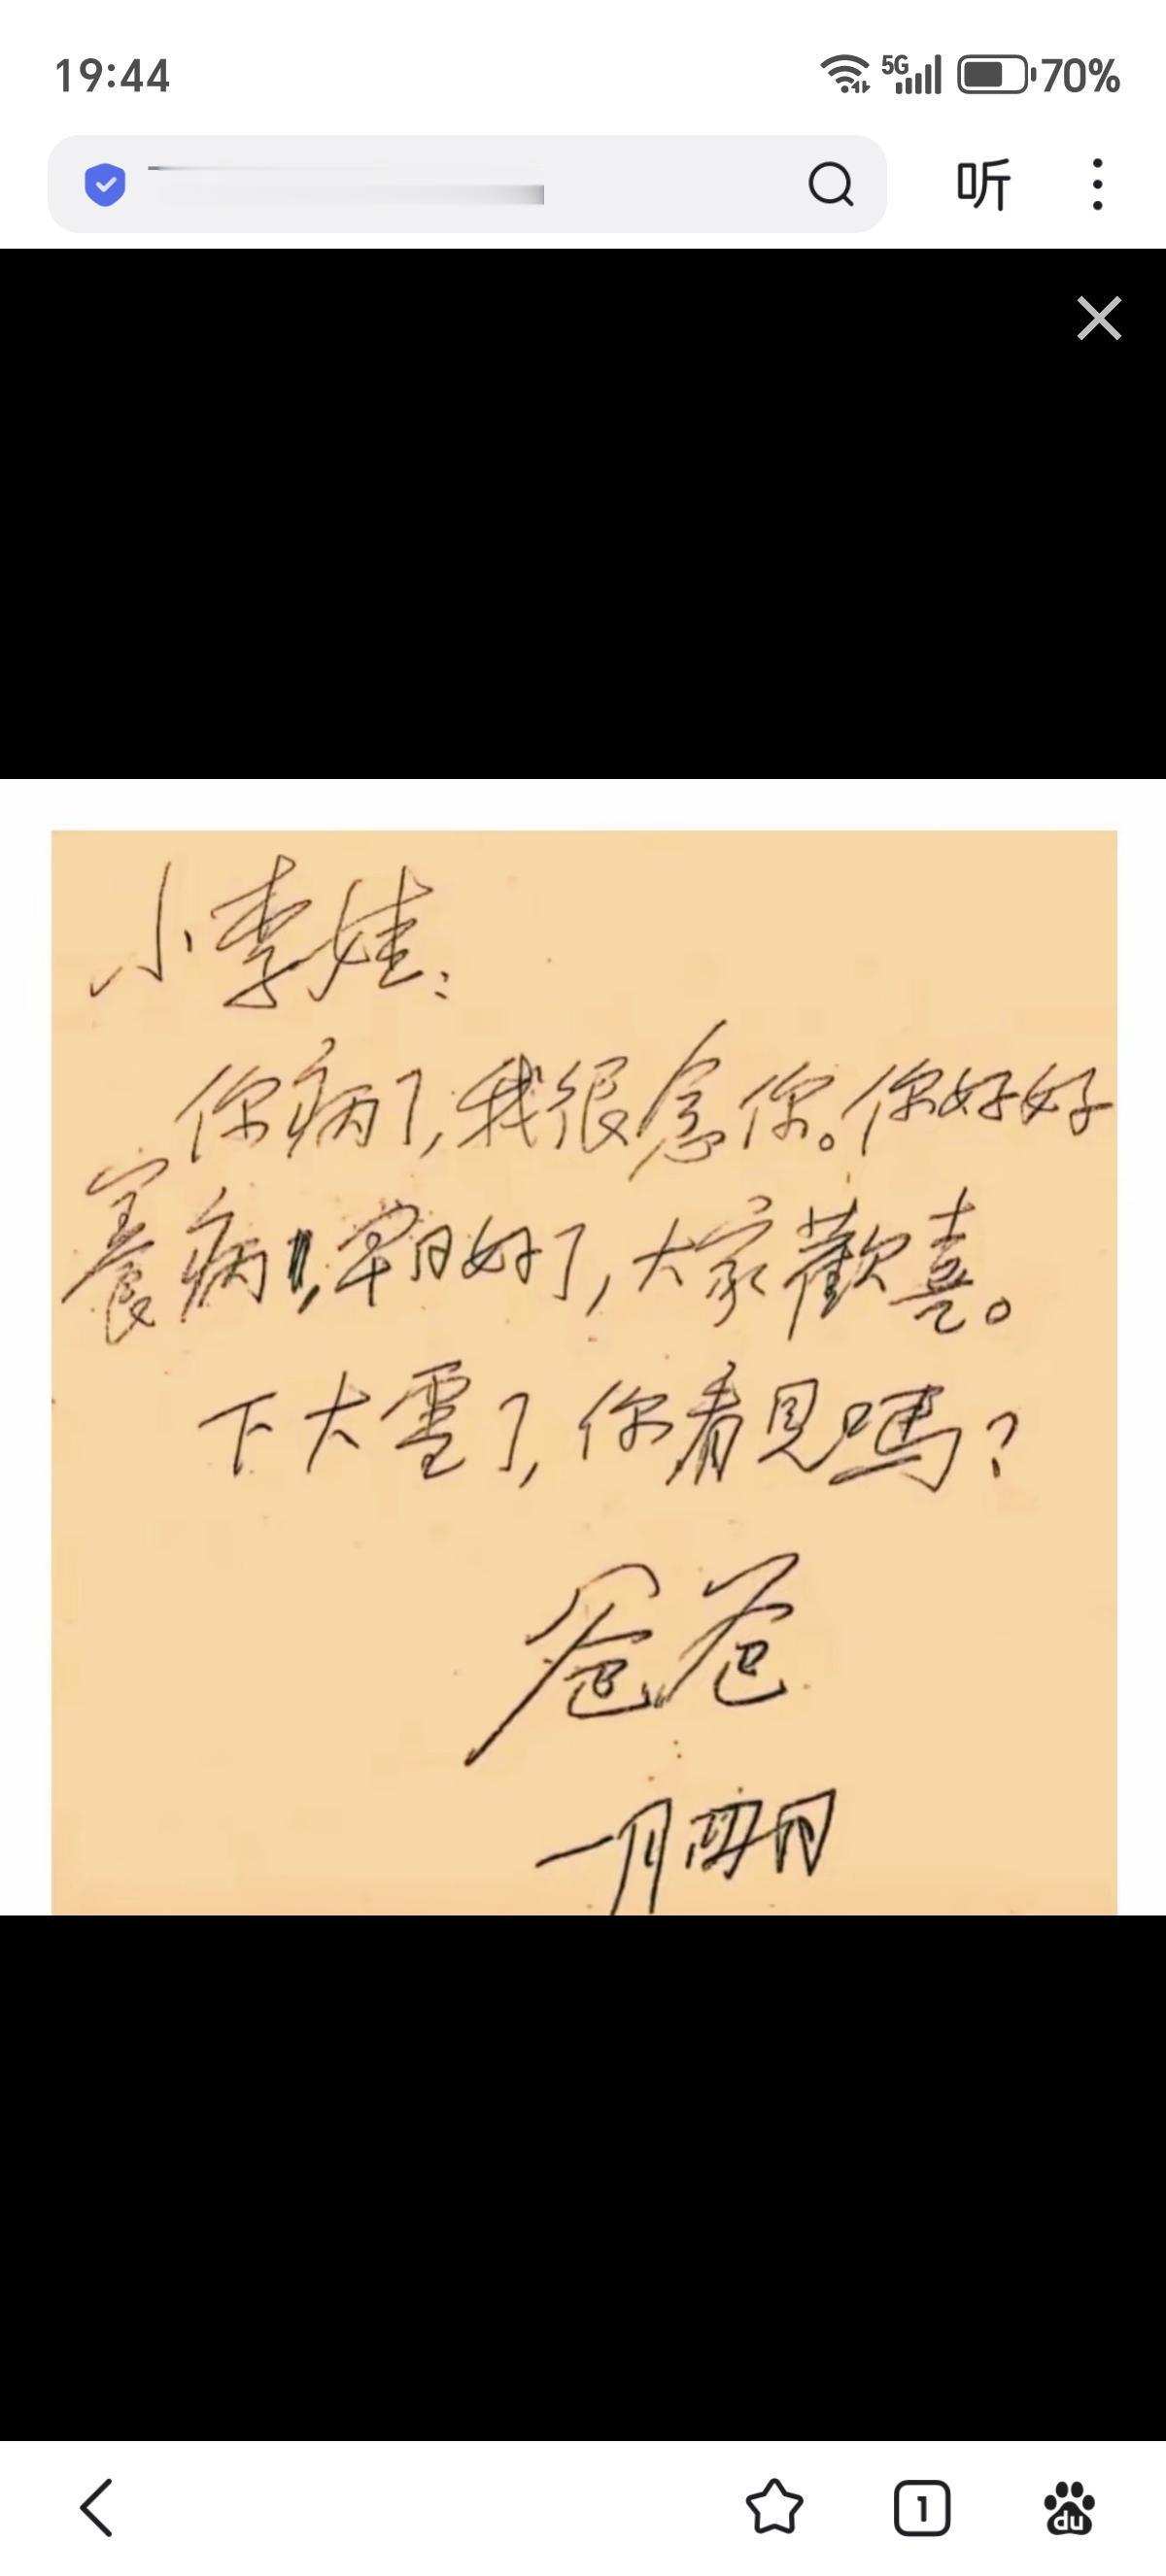 19:44
5G
70%
听
小李娃:
你病了,我很念你。你好好
养病,早日好了,大家歡喜。
下大雪了,你看見嗎?
爸爸
一月四日
1
du